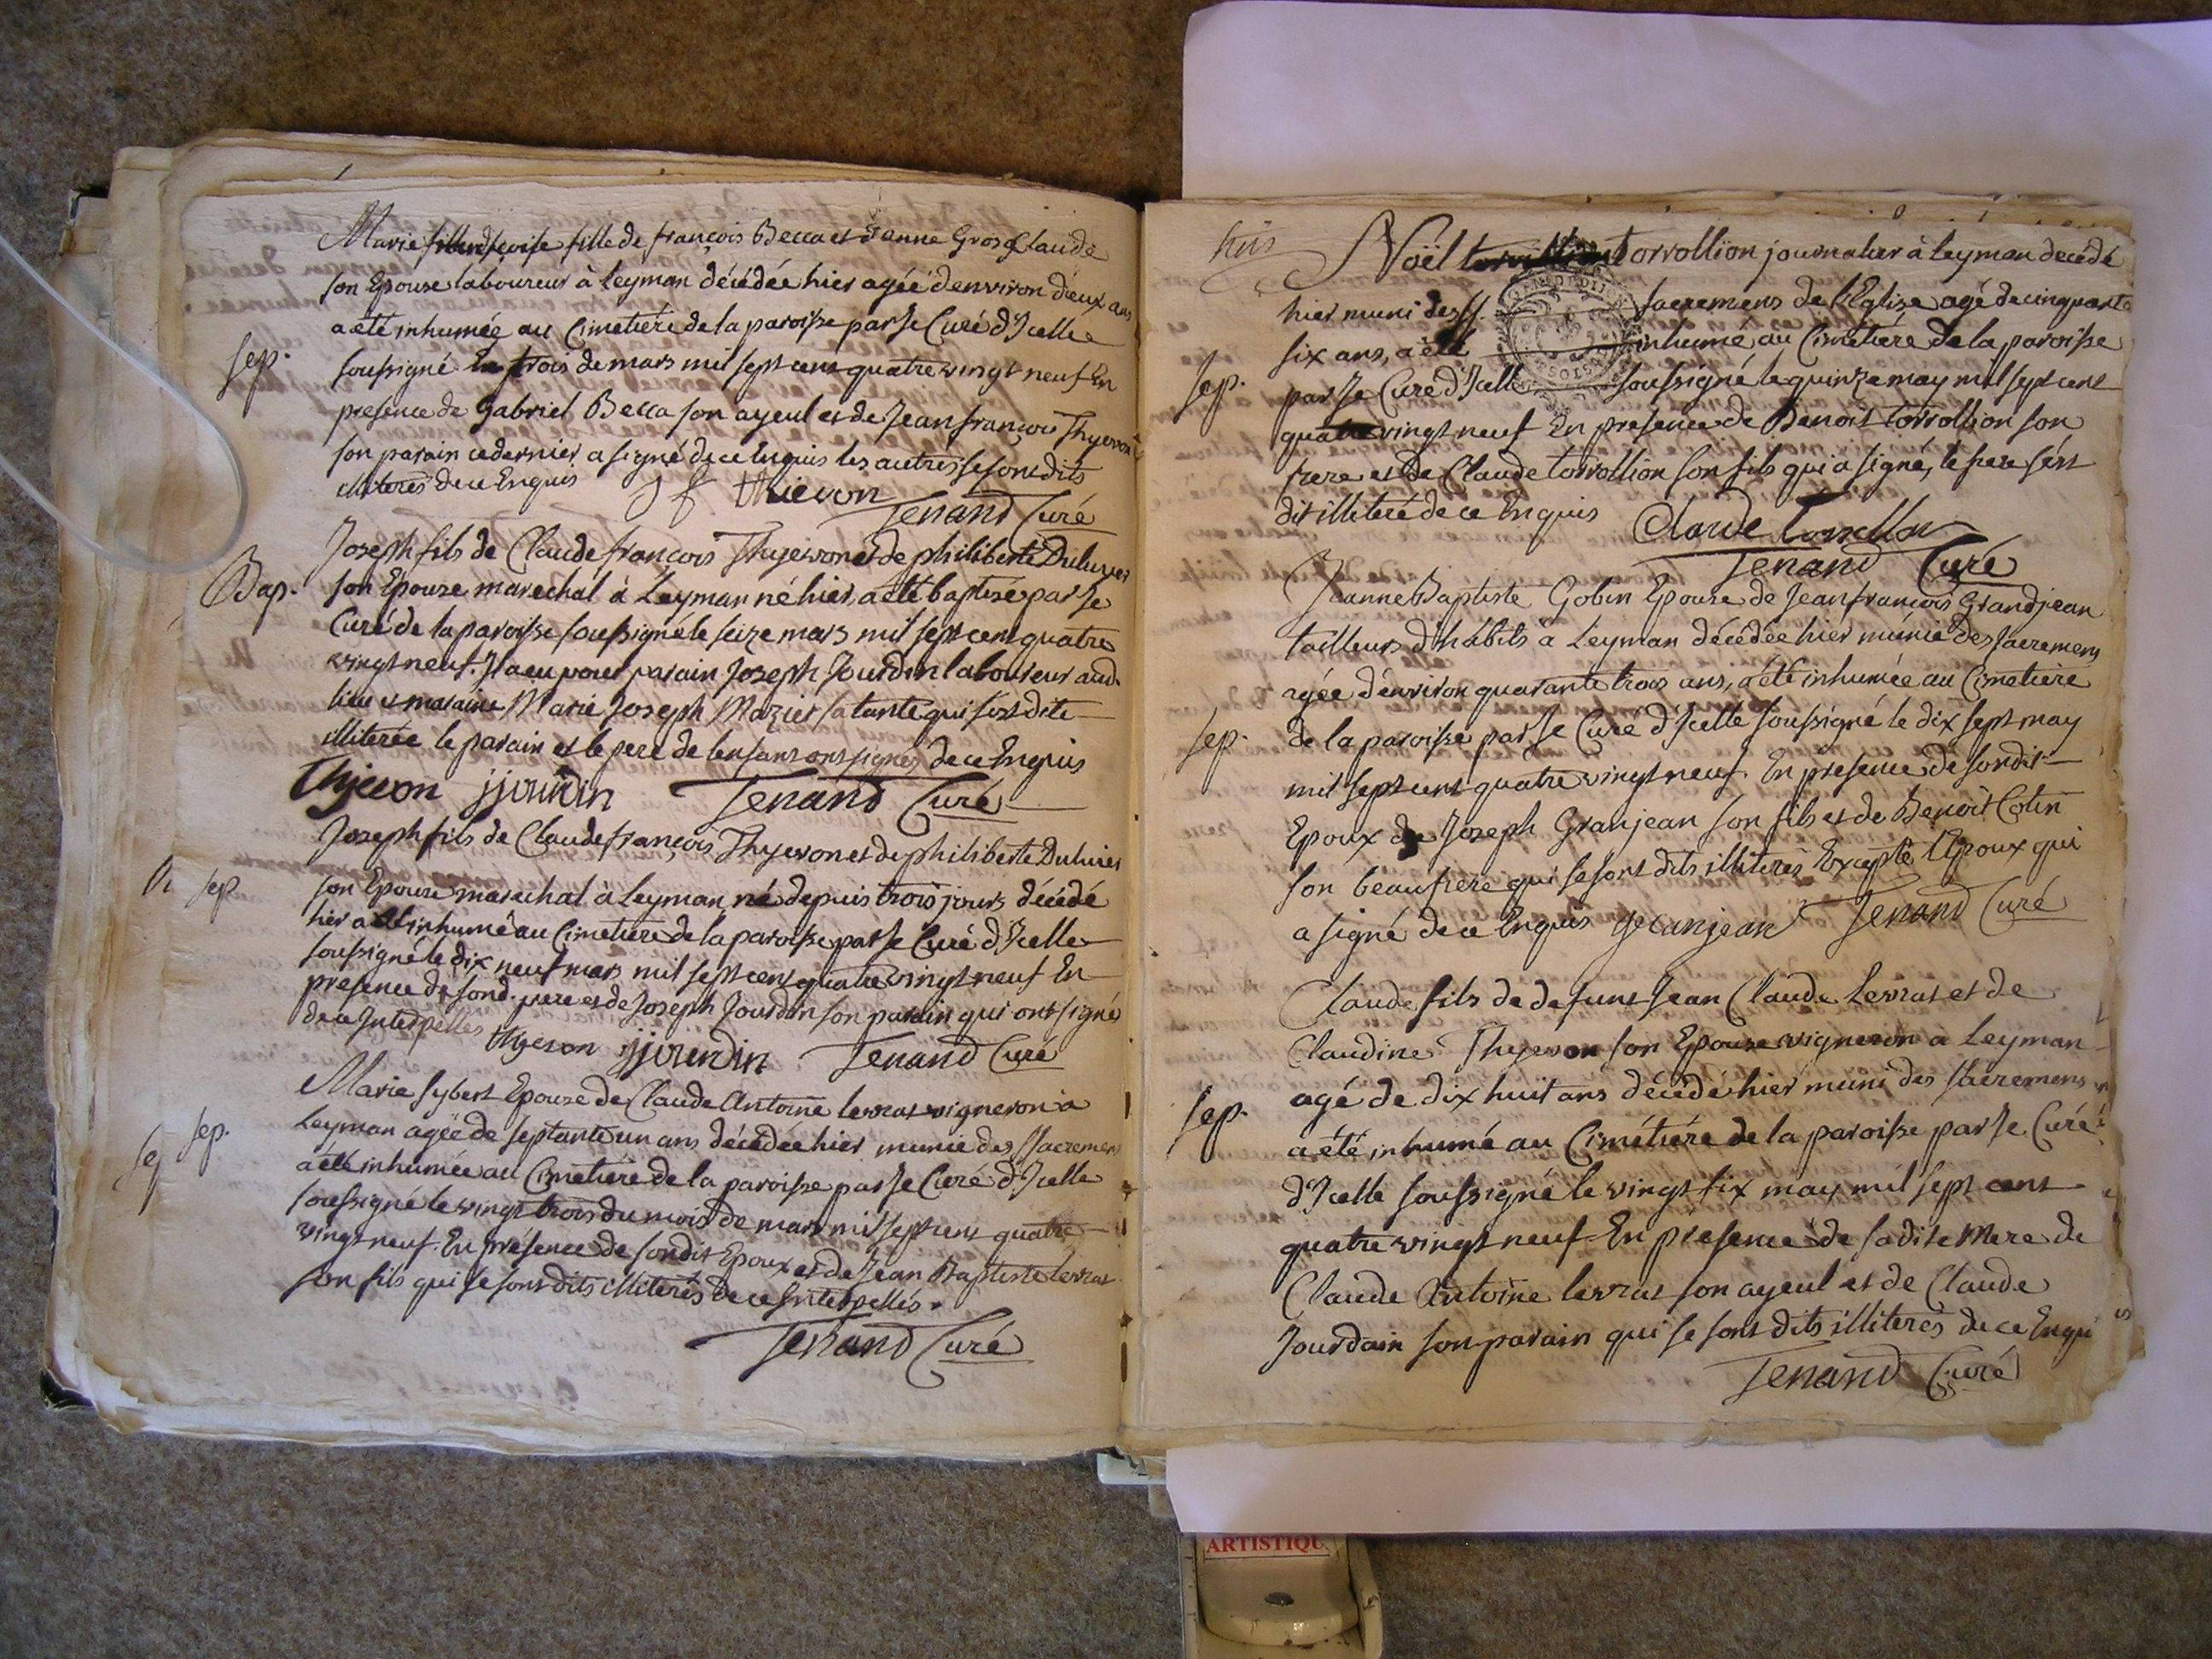 Marie françoise fille de françois Becca et d'anne Gros Claude
son Epouse laboureur à Leyman décédée hier agée d'environ deux ans
a été inhumée au Cimetiére de la paroisse par le Curé d'Icelle
sep. soussigné le trois de mars mil sept cens quatre vingt neuf En
presence de Gabriel Becca son ayeul et de Jean françois Thyevon
son parain ce dernier a signé de ce Enquis les autres se sont dits
illiterés de ce Enquis J f thievon
Tenand Curé
Joseph fils de Claude françois Thyevon et de philiberte
Bap. son Epouse marechal à Leyman né hier, a été baptisé par le
Curé de la paroisse soussigné le seize mars mil sept cent quatre
vingt neuf. Il a eu pour parain Joseph Jourdin laboureur aud.
lieu et maraine Marie Joseph Mazier sa tante qui s'est dite
illiterée le parain et le pere de l'enfant ont signés de ce Enquis
Thyevon jjourdin Tenand Curé
Joseph fils de Claude françois Thyevon et de philiberte
sep son Epouse marechal à Leyman né depuis trois jours décédé
hier a été inhumé au Cimetiére de la paroisse par le Curé d'Icelle
soussigné le dix neuf mars mil sept cens quatre vingt neuf En
presence de sond. pere et de Joseph Jourdin son parain qui ont signés
de ce Interpellés thyevon jjourdin Tenand Curé
Marie Sybert Epouse de Claude Antoine levrat vigneron à
sep. Leyman agée de septante un ans décédée hier munie des Sacremens
a été inhumée au Cimetiére de la paroisse par le Curé d'Icelle
soussigné le vingt trois du mois de mars mil sept cens quatre
vingt neuf. En présence de sondit Epoux et de Jean Baptiste levrat
son fils qui se sont dits illiterés de ce Interpellés.
Tenand Curé
Noël torvollion journalier à Leyman decédé
hier muni des SS. sacremens de l'Eglise agé de cinquante
six ans, a été inhumé au Cimétiére de la paroisse
sep. par le Curé d'Icelle soussigné le quinze may mil sept cens
quatre vingt neuf En presence de Benoit torvollion son
frere et de Claude torvollion son fils qui a signé, le frere s'est
dit illiteré de ce Enquis Claude
Tenand Curé
Jeanne Baptiste Gobin Epouse de Jean françois Grandjean
tailleurs d'habits à Leyman décédée hier múnie des sacremens
agée d'environ quarante trois ans, a été inhumée au Cimetiére
sep. de la paroisse par le Curé d'Icelle soussigné le dix sept may
mil sept cens quatre vingt neuf. En presence de sondit
Epoux de Joseph Granjean son fils et de Benoit Colin
son beaufrere qui se sont dits illiterés Excepté l'Epoux qui
a signé de ce Enquis Tenand Curé
Claude fils de defunt Jean Claude Levrat et de
Claudine Thyevon son Epouse vigneron à Leyman
agé de dix huit ans décédé hier muni des sacremens
sep. a été inhumé au Cimétiére de la paroisse par le Curé
d'Icelle soussigné le vingt six may mil sept cens
quatre vingt neuf En presence de sadite Mere de
Claude Antoine levrat son ayeul et de Claude
Jourdain son parain qui se sont dits illiterés de ce Enqui
Tenand Curé
ARTISTIQU